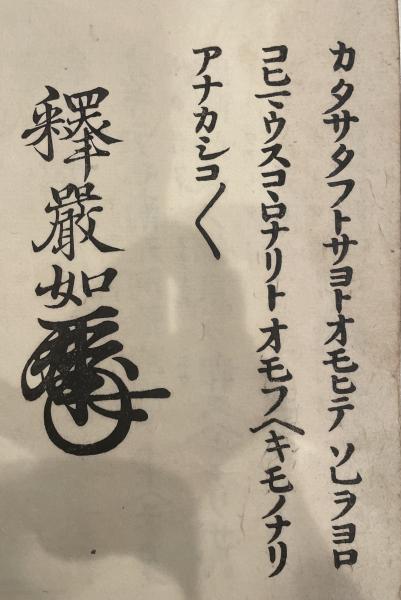 カタサタフトサヨトオモヒテ ソレヲヨロ
コヒマウスコヽロナリト オモフヘキモノナリ
アナカシコ〱
釋嚴如